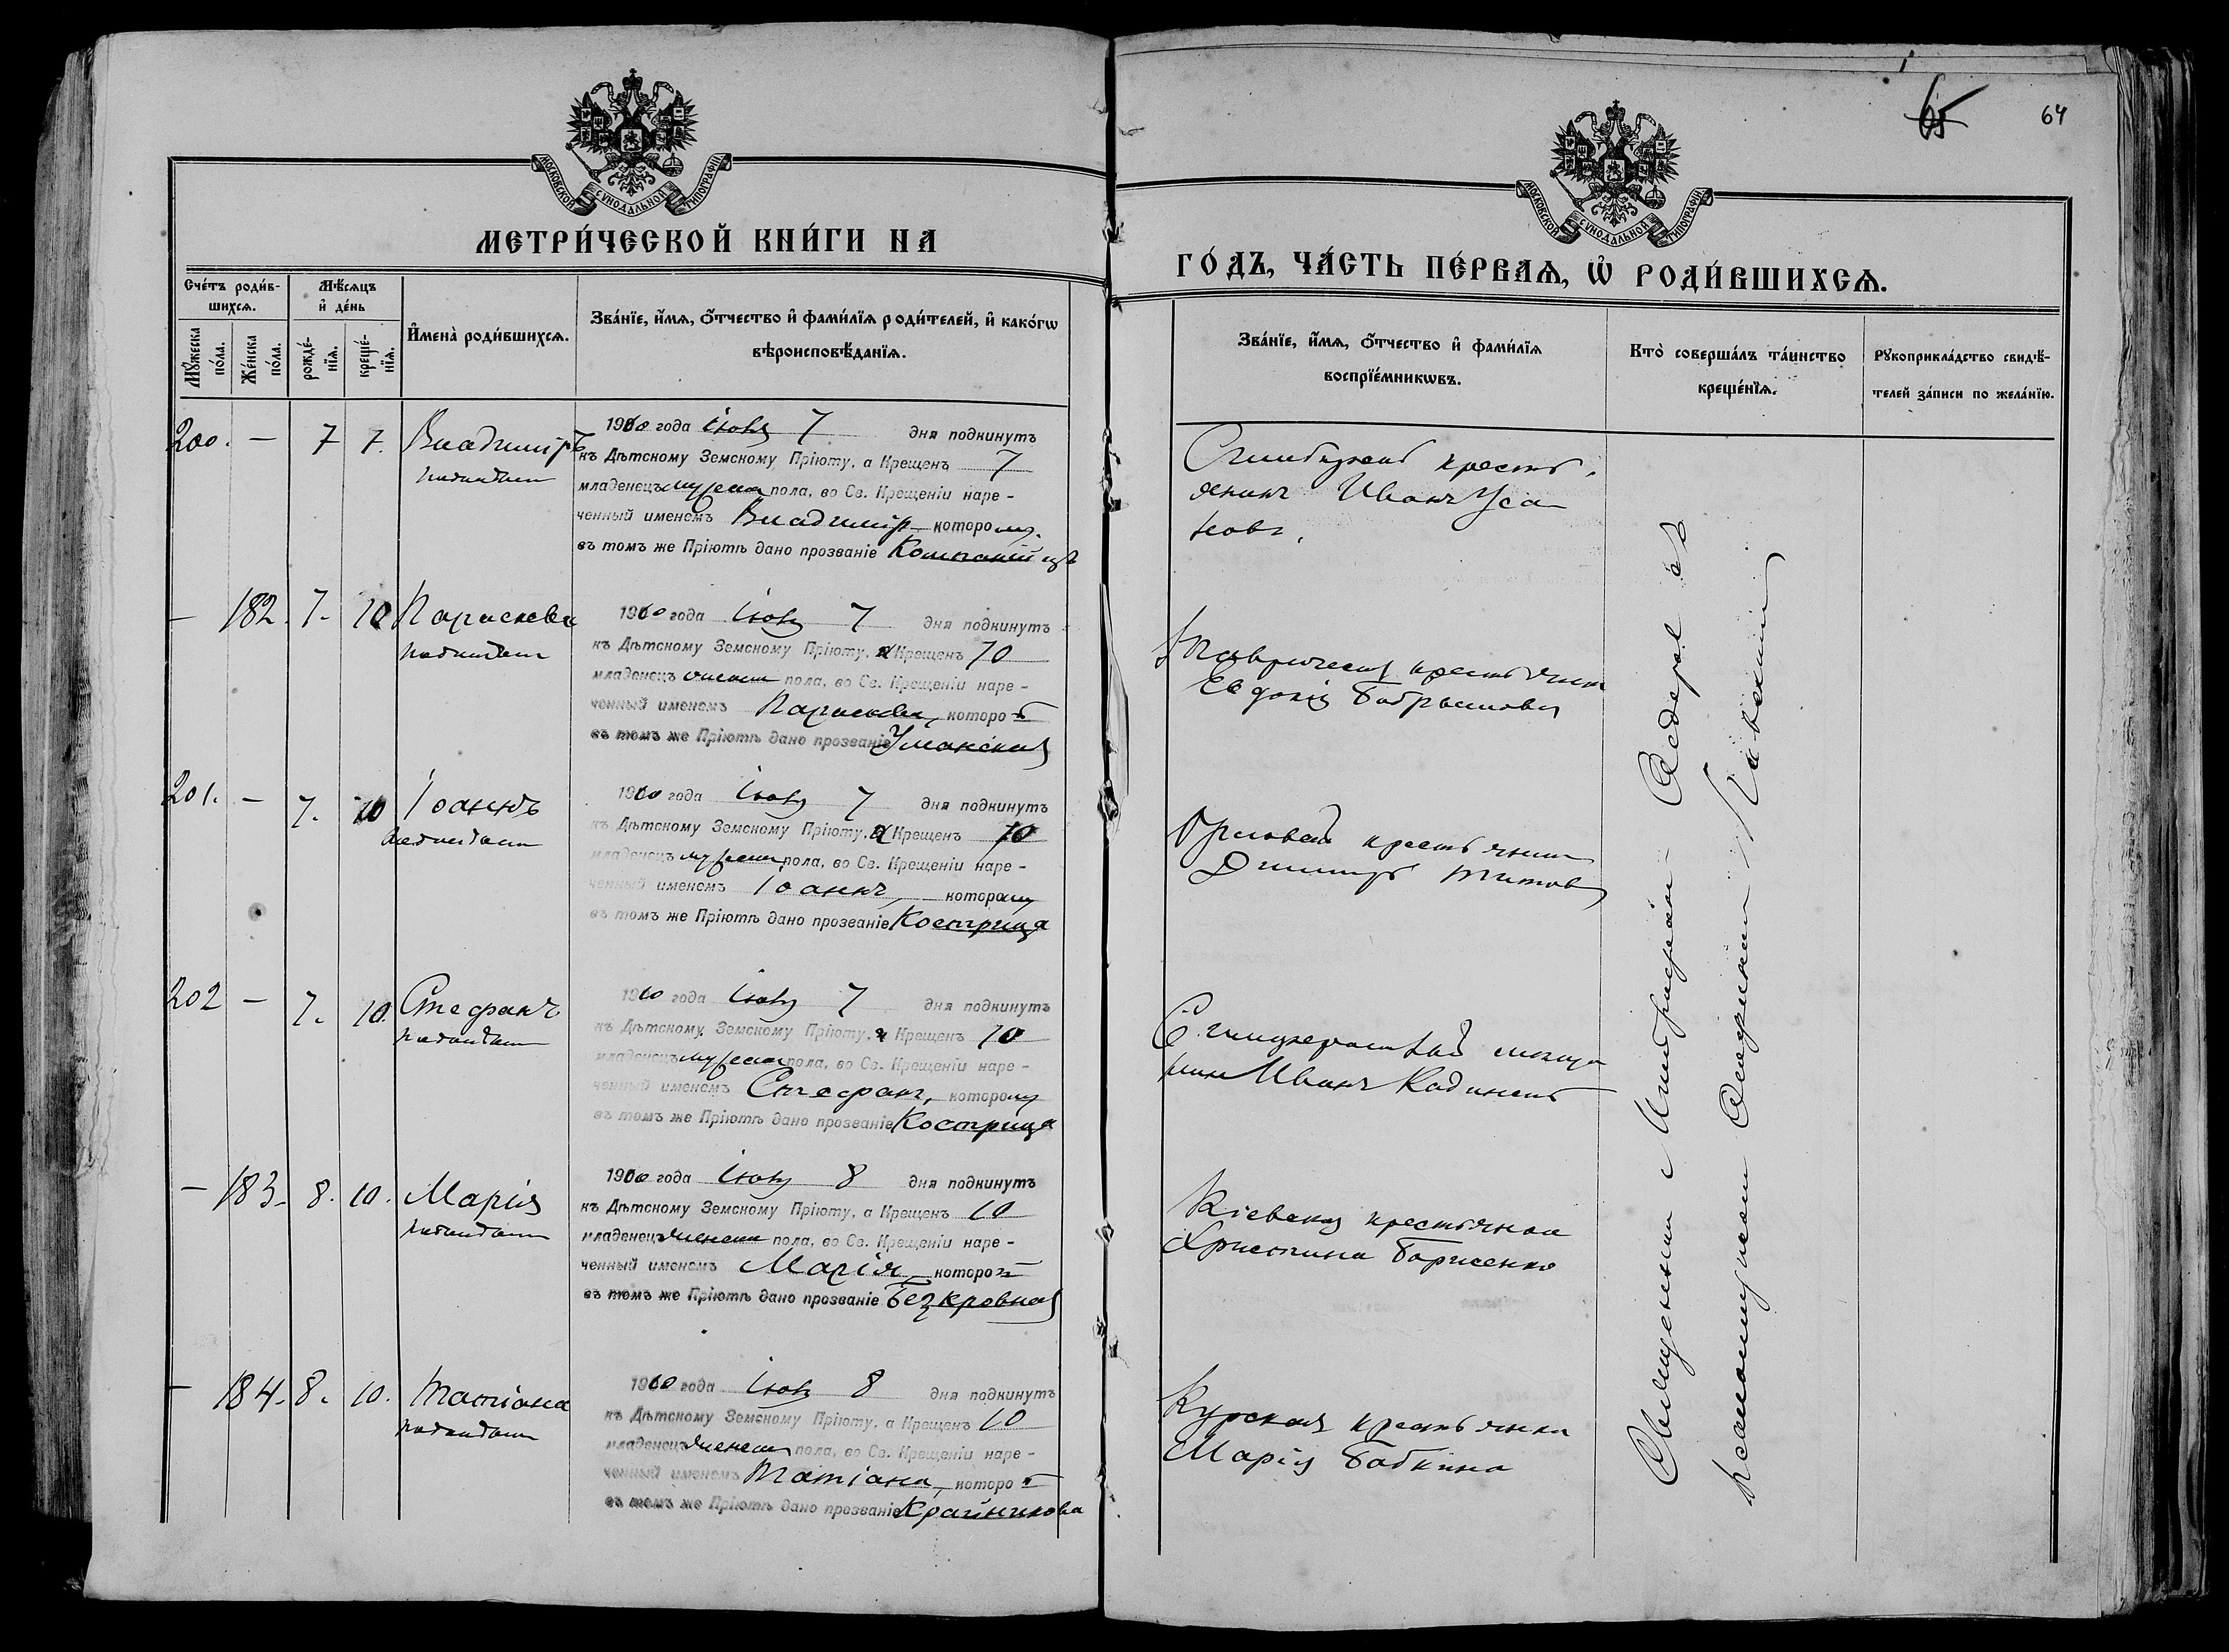 65
64
МОСКОВСКОЙ СѴНОДАЛЬНОЙ ТИПОГРАФІИ
МОСКОВСКОЙ СѴНОДАЛЬНОЙ ТИПОГРАФІИ
МЕТРИ́ЧЕСКОЙ КНИ́ГИ НА
ГО́ДЪ, ЧА́СТЬ ПЕ́РВАѦ, Ѡ҆ РОДИ́ВШИХСѦ.
Сче́тъ роди́в-
шихсѧ.
Мꙋ́жеска по́ла.
Же́нска по́ла.
Мѣ́сяцъ
и҆ де́нь
рожде́-
нїѧ.
креще́-
нїѧ.
И҆мена̀ роди́вшихсѧ.
Зва́нїе, и҆́мѧ, ѻ҆́тчество и҆ фами́лїѧ роди́телей, и҆ како́гѡ
вѣроисповѣ́данїѧ.
Зва́нїе, и҆́мѧ, ѻ҆́тчество и҆ фами́лїѧ
воспрїе́мникѡвъ.
Кто̀ соверша́лъ та́инство
креще́нїѧ.
Рꙋкоприкла́дство свидѣ́-
телей за́писи по жела́нїю.
200. — 7 7. Владиміръ
1900 года Іюня 7 дня подкинутъ
къ Дѣтскому Земскому Пріюту, а Крещенъ 7
младенецъ мужска пола, во Св. Крещеніи наре-
ченный именемъ Владиміръ которому
въ томъ же Пріютѣ дано прозваніе Компаніецъ
крестъ
янинъ Иванъ Уса
ковъ,
— 182. 7. 10 Параскева
1900 года Іюня 7 дня подкинутъ
къ Дѣтскому Земскому Пріюту, а Крещенъ 10
младенецъ женска пола, во Св. Крещеніи наре-
ченный именемъ Параскева, которой
въ томъ же Пріютѣ дано прозваніе Уманская
Таврическая крестьянка
Евдокія
201. — 7. 10 Іоаннъ
1900 года Іюня 7 дня подкинутъ
къ Дѣтскому Земскому Пріюту, а Крещенъ 10
младенецъ мужска пола, во Св. Крещеніи наре-
ченный именемъ Іоаннъ, которому
въ томъ же Пріютѣ дано прозваніе Кострица
Орловскій крестьянинъ
Димитрій Титовъ
202 — 7. 10. Стефанъ
1900 года Іюня 7 дня подкинутъ
къ Дѣтскому Земскому Пріюту, а Крещенъ 10
младенецъ мужска пола, во Св. Крещеніи наре-
ченный именемъ Стефанъ, которому
въ томъ же Пріютѣ дано прозваніе Кострица
Иванъ
— 183. 8. 10. Марія
1900 года Іюня 8 дня подкинутъ
къ Дѣтскому Земскому Пріюту, а Крещенъ 10
младенецъ женска пола, во Св. Крещеніи наре-
ченный именемъ Марія, которой
въ томъ же Пріютѣ дано прозваніе Безкровная
Кіевская крестьянка
Христина Борисенко
— 184. 8. 10. Татіана
1900 года Іюня 8 дня подкинутъ
къ Дѣтскому Земскому Пріюту, а Крещенъ 10
младенецъ женска пола, во Св. Крещеніи наре-
ченный именемъ Татіана, которой
въ томъ же Пріютѣ дано прозваніе Крайникова
Курская крестьянка
Марія Бабкина
Священникъ